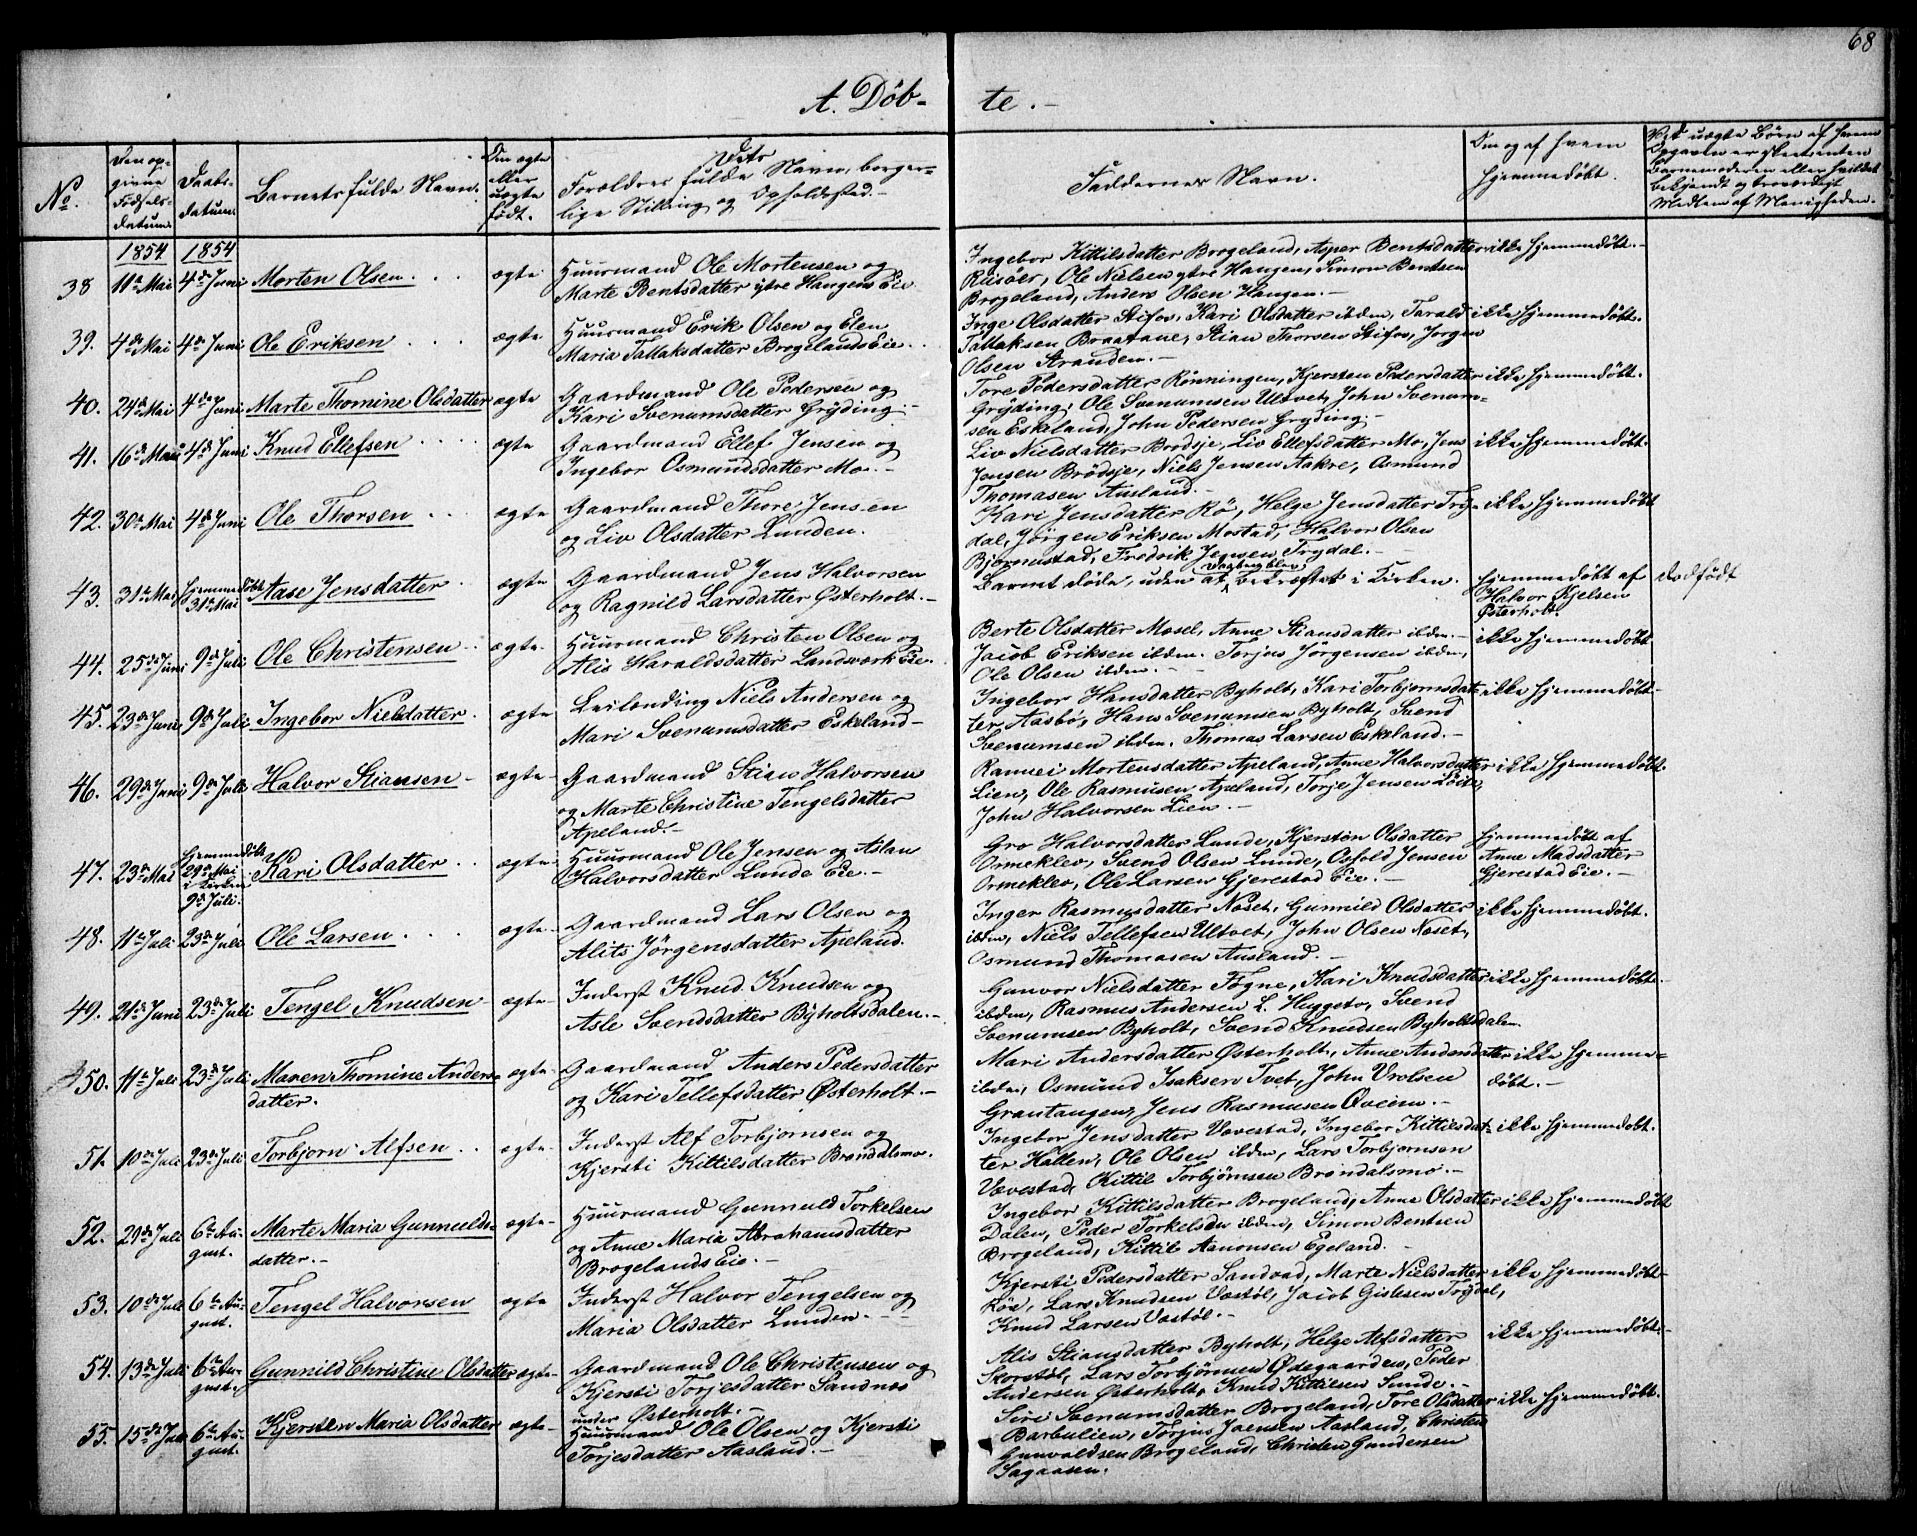 68
A. Døb- te.-
No.
Den op-
givne
Fødsels-
datum.
Daabs-
datum.
Barnets fulde Navn.
Om ægte
eller
uægte
født.
Dets
Forældres fulde Navn, borger-
lige Stilling og Opholdssted.-
Faddernes Navn.
Om og af hvem
hjemmedøbt.
Ved uægte Børn af hvem
Opgaven er skeet
Barnemoderen eller hvilket
bekjendt og troværdigt
Medlem af Menigheden.
1854 1854
38 11te Mai 4de Juni Morten Olsen ægte
Huusmand Ole Mortensen og
Marte Bentsdatter ytre Hangens Eie
Ingebor Kittilsdatter Brogeland, Asper Bentsdatter
Riisöer, Ole Nielsen ytre Hangen, Simon Bentsen
Brogeland, Anders Olsen Hangen.-
ikke hjemmedøbt.-
39. 4de Mai 4de Juni Ole Eriksen ægte
Huusmand Erik Olsen og Elen
Maria Tallaksdatter Brogelands Eie.
Inge Olsdatter Stifos, Kari Olsdatter ibdm, Tarald
Tallaksen Braatane, Stian Thorsen Stifos, Jørgen
Olsen Stranden.-
ikke hjemmedøbt.
40. 24de Mai 4de Juni Marte Thomine Olsdatter ægte
Gaardmand Ole Pedersen og
Kari Svenumsdatter Gryding.-
Tore Pedersdatter Rønningen, Kjersten Pedersdatter
Gryding, Ole Svenumsen Ultvet, John Svenum-
sen Eskeland, John Pedersen Gryding.-
ikke hjemmedøbt.
41. 16de Mai 4de Juni Knud Ellefsen ægte
Gaardmand Ellef Jensen og
Ingebor Osmundsdatter Mo.-
Liv Nielsdatter Brødsje, Liv Ellefsdatter Mo, Jens
Jensen Brødsje, Niels Jensen Aakre, Osmund
Thomasen Ausland.
ikke hjemmedøbt.
42. 30te Mai 4de Juni Ole Thorsen ægte
Gaardmand Thore Jensen
og Liv Olsdatter Lunden.
Kari Jensdatter Rø, Helge Jensdatter Try-
dal, Jørgen Eriksen Mostad, Halvor Olsen
Bjørnustad, Fredrik Jensen Trydal.-
ikke hjemmedøbt
43. 31te Mai Hjemmedøbt
31te Mai Aase Jensdatter ægte
Gaardmand Jens Halvorsen
og Ragnild Larsdatter Østerholt.-
Barnet døde, uden at Daaben blev bekræftet i Kirken.
hjemmedøbt af
Halvor Kjelsen
Østerholt.
dødfödt
44. 25de Juni 9de Juli Ole Christensen ægte
Huusmand Christen Olsen og
Alis Haraldsdatter Landsverk Eie.
Berte Olsdatter Mosel, Anne Stiansdatter ibdm.-
Jacob Eriksen ibdm. Torjus Jørgensen ibdm,
Ole Olsen ibdm.-
ikke hjemmedøbt
45. 23de Juni 9de Juli Ingebor Nielsdatter ægte
Leilending Niels Andersen og
Mari Svenumsdatter Eskeland-
Ingebor Hansdatter Byholt, Kari Torbjørnsdat-
ter Aasbø, Hans Svenumsen Byholt, Svend
Svenumsen ibdm. Thomas Larsen Eskeland.-
ikke hjemmedøbt-
46. 29de Juni 9de Juli Halvor Stiansen ægte
Gaardmand Stian Halvorsen
og Marte Christine Tengelsdatter
Apeland.-
Ramvei Mortensdatter Apeland, Anne Halvorsdatter
Lien, Ole Rasmusen Apeland, Torje Jensen Löite,
John Halvorsen Lien.-
ikke hjemmedøbt.
47. 23de Mai Hjemmedøbt
29de Mai
i Kirken
9de Juli. Kari Olsdatter ægte
Huusmand Ole Jensen og Aslau
Halvorsdatter Lunde Eie.-
Gro Halvorsdatter Lunde, Kjersten Olsdatter
Ormeklev, Svend Olsen Lunde, Osfold Jensen
Ormeklev, Ole Larsen Gjerestad Eie.-
hjemmedøbt af
Anne Madsdatter
Gjerestad Eie.-
48. 11te Juli 23de Juli Ole Larsen ægte
Gaardmand Lars Olsen og
Alits Jørgensdatter Apeland.
Inger Rasmusdatter Næset, Gunnild Olsdatter
ibdm, Niels Tellefsen Ultvet, John Olsen Næset,
Osmund Thomasen Ausland.-
ikke hjemmedøbt.
49. 21de Juni 23de Juli Tengel Knudsen ægte
Inderst Knud Knudsen og
Asle Svendsdatter Byholtsdalen.-
Gunvor Nielsdatter Fogne, Kari Knudsdatter
ibdm, Rasmus Andersen L. Huggsto, Svend
Svenumsen Byholt, Svend Knudsen Byholtsdalen
ikke hjemmedøbt.
50. 11te Juli 23de Juli Maren Thomine Anders-
datter. ægte
Gaardmand Anders Pedersdatter
og Kari Tellefsdatter Østerholt.-
Mari Andersdatter Østerholt, Anne Andersdatter
ibdm, Osmund Isaksen Tvet, John Vrolsen
Grantangen, Jens Rasmusen Øveim.-
ikke hjemme-
døbt.-
51. 10de Juli 23de Juli Torbjørn Alfsen ægte
Inderst Alf Torbjørnsen og
Kjersti Kittilsdatter Brøndalsmo.
Ingebor Jensdatter Vævestad, Ingebor Kittilsdat-
ter Holten, Ole Olsen ibdm, Lars Torbjørnsen
Vævestad, Kittil Torbjørnsen Brøndalsmo.-
ikke hjemmedøbt.
52. 29de Juli 6te Au-
gust. Marte Maria Gunnulds-
datter.- ægte
Huusmand Gunnuld Torkelsen
og Anne Maria Abrahamsdatter
Brogelands Eie.-
Ingebor Kittilsdatter Brogeland, Anne Olsdatter
Dalen, Peder Torkelsen ibdm, Simon Bentsen
Brogeland, Kittil Aanonsen Egeland.
ikke hjemmedøbt
53. 10de Juli 6te Au-
gust. Tengel Halvorsen ægte
Inderst Halvor Tengelsen og
Maria Olsdatter Lunden.-
Kjersti Pedersdatter Sandvad, Marte Nielsdatter
Röe, Lars Knudsen Vestøl, Jacob Gislesen Trydal,
Knud Larsen Vestøl.-
ikke hjemmedøbt-
54. 13de Juli 6te Au-
gust. Gunnild Christine Olsdatter ægte
Gaardmand Ole Christensen og
Kjersti Torjesdatter Sandnes
under Østerholt.-
Alis Stiansdatter Byholt, Helge Alfsdatter
Skorstøl, Lars Torbjørnsen Ødegaarden, Peder
Andersen Østerholt, Knud Kittilsen Lunde.-
ikke hjemmedøbt.
55. 15de Juli 6te Au-
gust. Kjersten Maria Olsdatter ægte
Huusmand Ole Olsen og Kjersti
Torjesdatter Aasland.-
Siri Svenumsdatter Brogeland, Tore Olsdatter
Barbulien, Torjus Jensen Aasland, Christen
Gunvaldsen Brogeland, Christen Gundersen
Sagaasen.
ikke hjemmedøbt.